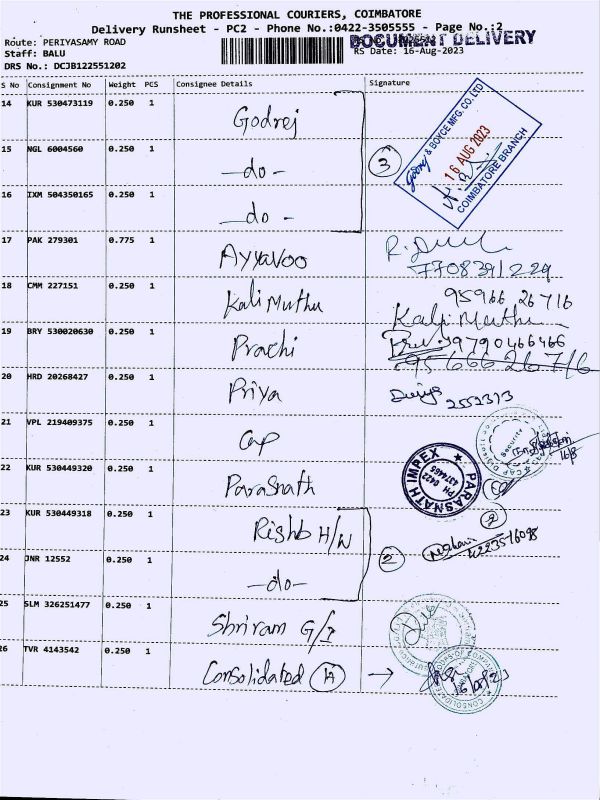 THE PROFESSIONAL COURIERS, COIMBATORE
Delivery Runsheet - PC2 - Phone No.:0422-3505555 - Page No.:2
DOCUMENT DELIVERY
Route: PERIYASAMY ROAD
Staff: BALU
RS Date: 16-Aug-2023
DRS No.: DCJB122551202
S No Consignment No Weight PCS Consignee Details Signature
14 KUR 530473119 0.250 1 Godrej
Godrej & BOYCE MFG. CO. LTD
16 AUG 2023
COIMBATORE BRANCH
15 NGL 6004560 0.250 1 -do- 3
16 IXM 504350165 0.250 1 -do-
17 PAK 279301 0.775 1 Ayyavoo
7708391229
18 CMM 227151 0.250 1 Kali Muthu 95966 26716
Kali Muthu
19 BRY 530020630 0.250 1 Prachi 9790466466
20 HRD 20268427 0.250 1 Priya 2552313
21 VPL 219409375 0.250 1 Cap
Security
16/8
22 KUR 530449320 0.250 1 Parasnath
PARASNATH IMPEX
PH 0422
4374465
23 KUR 530449318 0.250 1 Rishb H/W 2
24 JNR 12552 0.250 1 -do- 2
25 SLM 326251477 0.250 1 Shriram G/I
26 TVR 4143542 0.250 1 Consolidated 14 →